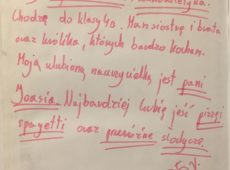 Chodzę do klasy 4a. Mam siostrę i brata
oraz królika, których bardzo kocham.
Moją ulubioną nauczycielką jest pani
Joasia. Najbardziej lubię jeść pizzę,
spagetti oraz przeróżne słodycze.